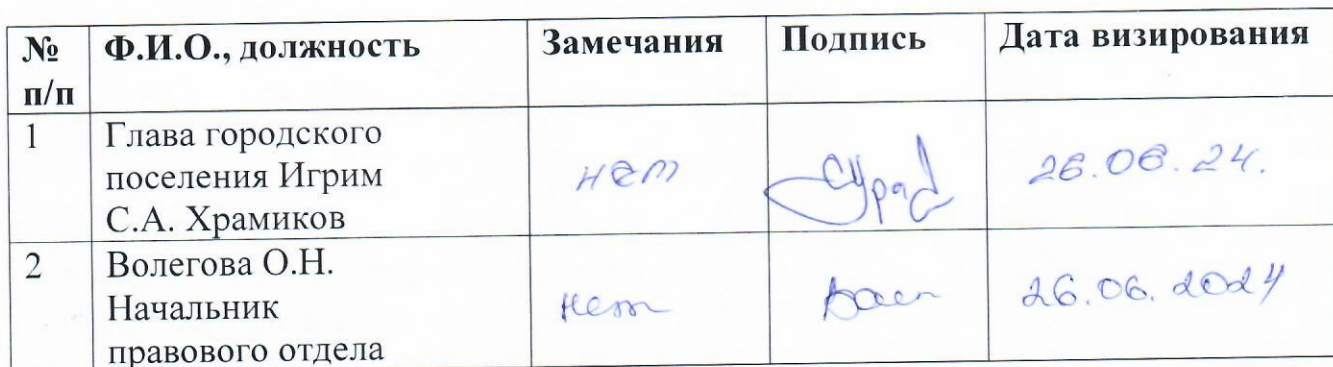 № п/п Ф.И.О., должность Замечания Подпись Дата визирования
1 Глава городского поселения Игрим С.А. Храмиков нет 26.06.24.
2 Волегова О.Н. Начальник правового отдела нет 26.06.2024